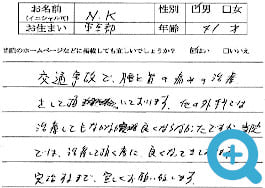 お名前 (イニシャル可) N.K 性別 ☑男 □女
お住まい 年齢 41才
ホームページなどに掲載しても宜しいでしょうか? ☑はい □いいえ
交通事故で、腰と首の痛みの治療
として おります。他の外科では
治療してもなかなか 良くならなかったですが、当院
では、治療して頂く度に、良くなって
完治まで、宜しくお願い致します。